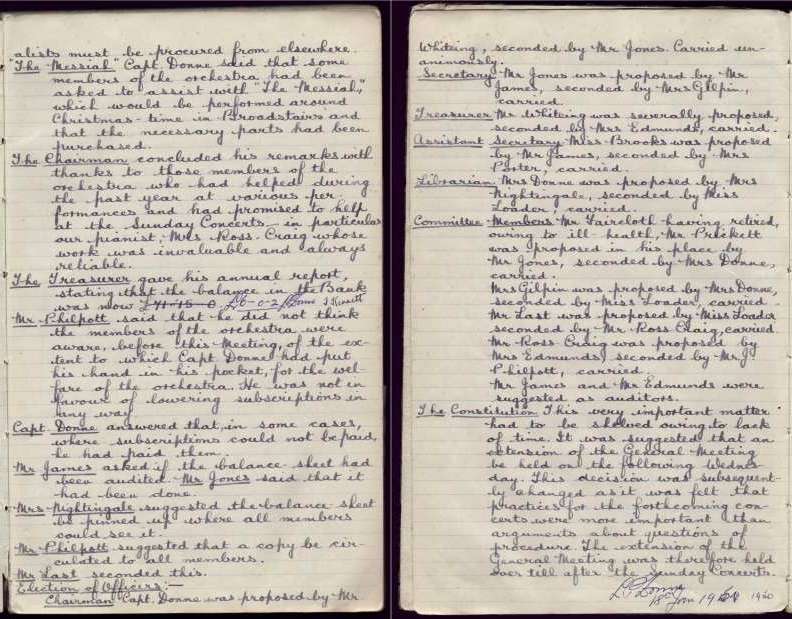 alists must be procured from elsewhere.
"The Messiah" Capt. Donne said that some
members of the orchestra had been
asked to assist with "The Messiah,"
which would be performed around
Christmas-time in Broadstairs and
that the necessary parts had been
purchased.
The Chairman concluded his remarks with
thanks to those members of the
orchestra who had helped during
the past year at various per-
formances and had promised to help
at the Sunday Concerts - in particular
our pianist, Mrs Ross-Craig whose
work was invaluable and always
reliable.
The Treasurer gave his annual report,
stating that the balance in the Bank
was now £6-0-2
Mr Philpott said that he did not think
the members of the orchestra were
aware, before this Meeting, of the ex-
tent to which Capt. Donne had put
his hand in his pocket, for the wel-
fare of the orchestra. He was not in
favour of lowering subscriptions in
any way.
Capt. Donne answered that, in some cases,
where subscriptions could not be paid,
he had paid them.
Mr James asked if the balance-sheet had
been audited. Mr Jones said that it
had been done.
Mrs Nightingale suggested the balance-sheet
be pinned up where all members
could see it.
Mr Philpott suggested that a copy be cir-
culated to all members.
Mr Last seconded this.
Election of Officers:—
Chairman Capt. Donne was proposed by Mr
Whiteing, seconded by Mr Jones. Carried un-
animously.
Secretary Mr Jones was proposed by Mr
James, seconded by Mrs Gilpin,
carried.
Treasurer Mr Whiteing was severally proposed,
seconded by Mrs Edmunds, carried.
Assistant Secretary Miss Brooks was proposed
by Mr James, seconded by Mrs
Porter, carried.
Librarian Mrs Donne was proposed by Mrs
Nightingale, seconded by Miss
Loader, carried.
Committee Members Mr Faircloth having retired,
owing to ill-health, Mr Prickett
was proposed in his place by
Mr Jones, seconded by Mrs Donne,
carried.
Mrs Gilpin was proposed by Mrs Donne,
seconded by Miss Loader, carried.
Mr Last was proposed by Miss Loader
seconded by Mr Ross-Craig, carried
Mr Ross Craig was proposed by
Mrs Edmunds, seconded by Mr
Philpott, carried.
Mr James and Mr Edmunds were
suggested as auditors.
The Constitution This very important matter
had to be shelved owing to lack
of time. It was suggested that an
extension of the General Meeting
be held on the following Wednes-
day. This decision was subsequent-
ly changed as it was felt that
practices for the forthcoming con-
certs were more important than
arguments about questions of
procedure. The extension of the
General Meeting was therefore held
over till after the Sunday Concerts.